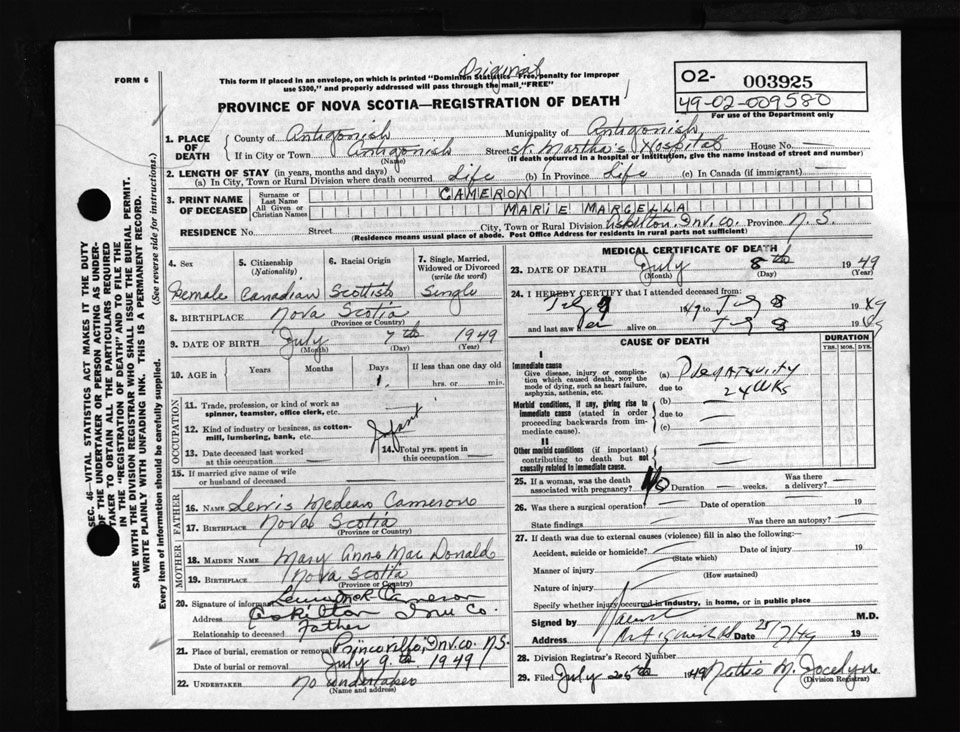 Original
FORM 6
This form if placed in an envelope, on which is printed "Dominion Statistics Free, penalty for improper
use $300," and properly addressed will pass through the mail, "FREE"
O2- 003925
49-02-009580
For use of the Department only
PROVINCE OF NOVA SCOTIA—REGISTRATION OF DEATH
1. PLACE OF DEATH
County of Antigonish Municipality of Antigonish
If in City or Town Antigonish Street St. Martha's Hospital House No. —
(Name) (If death occurred in a hospital or institution, give the name instead of street and number)
2. LENGTH OF STAY (in years, months and days)
(a) In City, Town or Rural Division where death occurred Life (b) In Province Life (c) In Canada (if immigrant) —
3. PRINT NAME OF DECEASED
Surname or Last Name CAMERON
All Given or Christian Names MARIE MARGELLA
RESIDENCE No. Street City, Town or Rural Division Inv. Co. Province N.S.
(Residence means usual place of abode. Post Office Address for residents in rural parts not sufficient)
4. Sex Female
5. Citizenship (Nationality) Canadian
6. Racial Origin Scottish
7. Single, Married, Widowed or Divorced (write the word) Single
8. BIRTHPLACE Nova Scotia
(Province or Country)
9. DATE OF BIRTH July 7th 1949
(Month) (Day) (Year)
10. AGE in Years Months Days 1. If less than one day old hrs. or min.
OCCUPATION
11. Trade, profession, or kind of work as spinner, teamster, office clerk, etc. —
12. Kind of industry or business, as cotton-mill, lumbering, bank, etc. Infant
13. Date deceased last worked at this occupation
14. Total yrs. spent in this occupation
15. If married give name of wife or husband of deceased —
FATHER
16. NAME Lewis Cameron
17. BIRTHPLACE Nova Scotia
(Province or Country)
MOTHER
18. MAIDEN NAME Mary Anne MacDonald
19. BIRTHPLACE Nova Scotia
(Province or Country)
20. Signature of informant Cameron
Address Inv Co.
Relationship to deceased Father
21. Place of burial, cremation or removal Inv. Co. N.S.
Date of burial or removal July 9th 1949
22. UNDERTAKER No undertaker
(Name and address)
MEDICAL CERTIFICATE OF DEATH
23. DATE OF DEATH July 8th 1949
(Month) (Day) (Year)
24. I HEREBY CERTIFY that I attended deceased from:
1949 to July 8 1949
and last saw her alive on July 8 1949
CAUSE OF DEATH
DURATION
YRS. MOS. DYS.
I
Immediate cause
Give disease, injury or complication which caused death, NOT the mode of dying, such as heart failure, asphyxia, asthenia, etc.
(a) Prematurity
due to 24 WKS
Morbid conditions, if any, giving rise to immediate cause (stated in order proceeding backwards from immediate cause).
(b) —
due to —
(c) —
II
Other morbid conditions (if important) contributing to death but not causally related to immediate cause.
25. If a woman, was the death associated with pregnancy? No Duration — weeks. Was there a delivery? —
26. Was there a surgical operation? — Date of operation 19
State findings — Was there an autopsy? —
27. If death was due to external causes (violence) fill in also the following:—
Accident, suicide or homicide? — Date of injury 19
(State which)
Manner of injury —
(How sustained)
Nature of injury —
Specify whether injury occurred in industry, in home, or in public place
Signed by M.D.
Address Antigonish Date 25/7/49 19
28. Division Registrar's Record Number
29. Filed July 25th 1949 Nettie M. Jocelyn
(Division Registrar)
SEC. 46—VITAL STATISTICS ACT MAKES IT THE DUTY
OF THE UNDERTAKER OR PERSON ACTING AS UNDERTAKER TO OBTAIN ALL THE PARTICULARS REQUIRED
IN THE "REGISTRATION OF DEATH" AND TO FILE THE
SAME WITH THE DIVISION REGISTRAR WHO SHALL ISSUE THE BURIAL PERMIT.
WRITE PLAINLY WITH UNFADING INK. THIS IS A PERMANENT RECORD.
Every item of information should be carefully supplied. (See reverse side for instructions.)